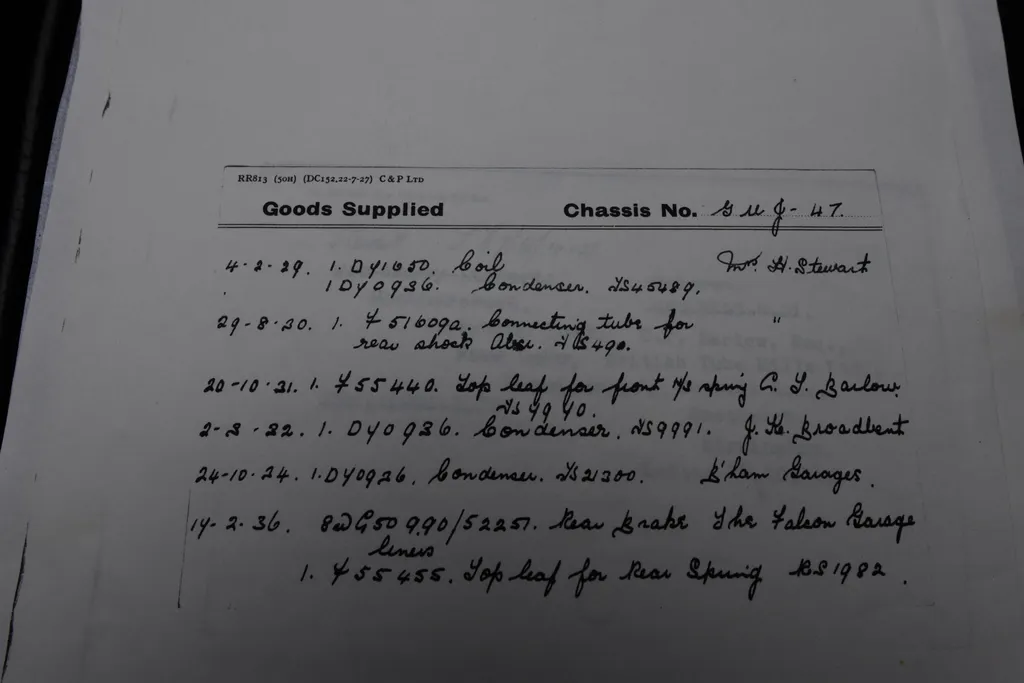 RR813 (50H) (DC152.22-7-27) C & P LTD
Goods Supplied Chassis No. G U J - 47.
4-2-29. 1. DY1650. Coil Mrs. H. Stewart
1 DY0936. Condenser. TS45489.
29-8-30. 1. F 51609a. Connecting tube for "
rear shock Absr. TS490.
20-10-31. 1. F55440. Top leaf for front spring C. T. Barlow.
TS4940.
2-3-32. 1. DY0936. Condenser. TS9991. J. H. Broadbent
24-10-34. 1. DY0936. Condenser. TS21300. B'ham Garages.
14-2-36. 50990/52251. Rear Brake The Falcon Garage
liners
1. F55455. Top leaf for Rear Spring RS1982.